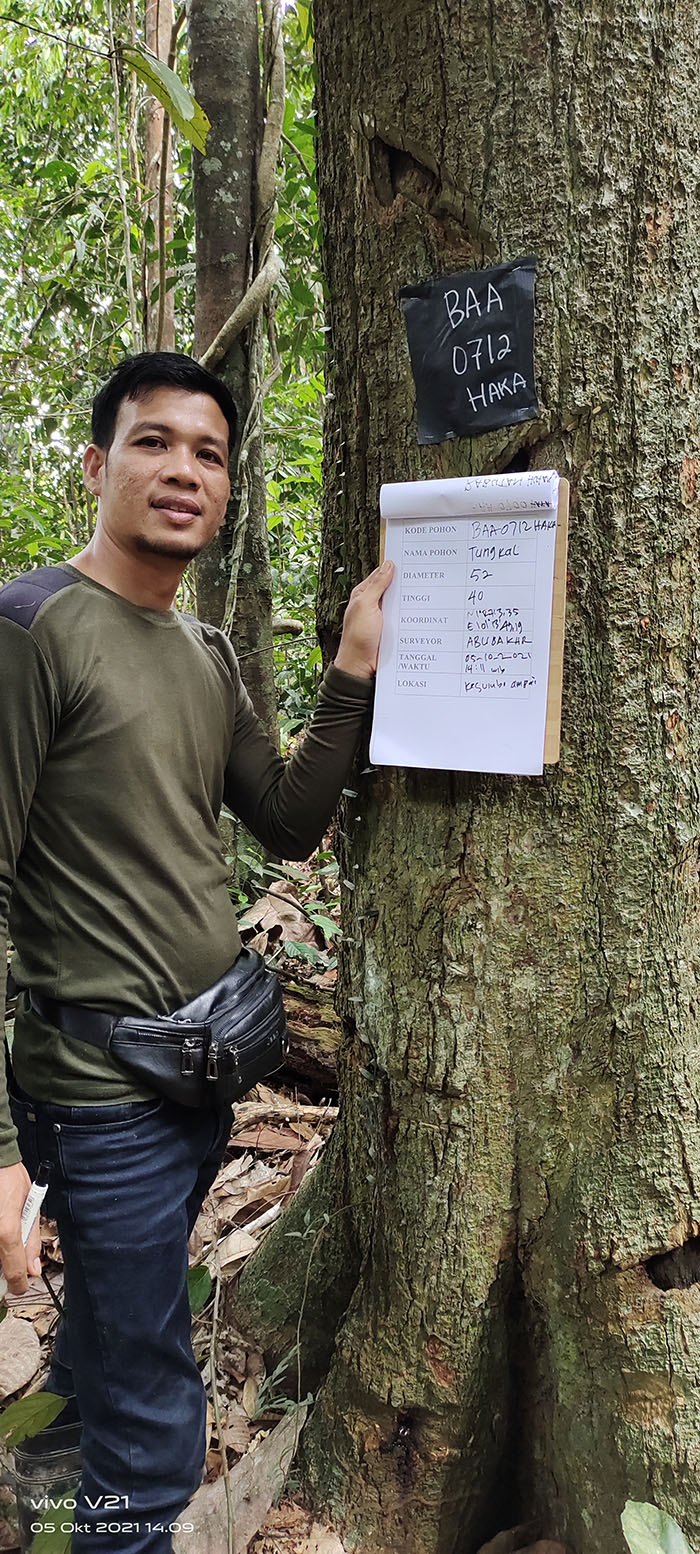 BAA
0712
HAKA
KODE POHON BAA0712 HAKA
NAMA POHON Tungkal
DIAMETER 52
TINGGI 40
KOORDINAT
SURVEYOR ABUBAKAR
TANGGAL 05-10-2021
/WAKTU 14:11 wib
LOKASI Kesumbo ampai
vivo V21
05 Okt 2021 14.09